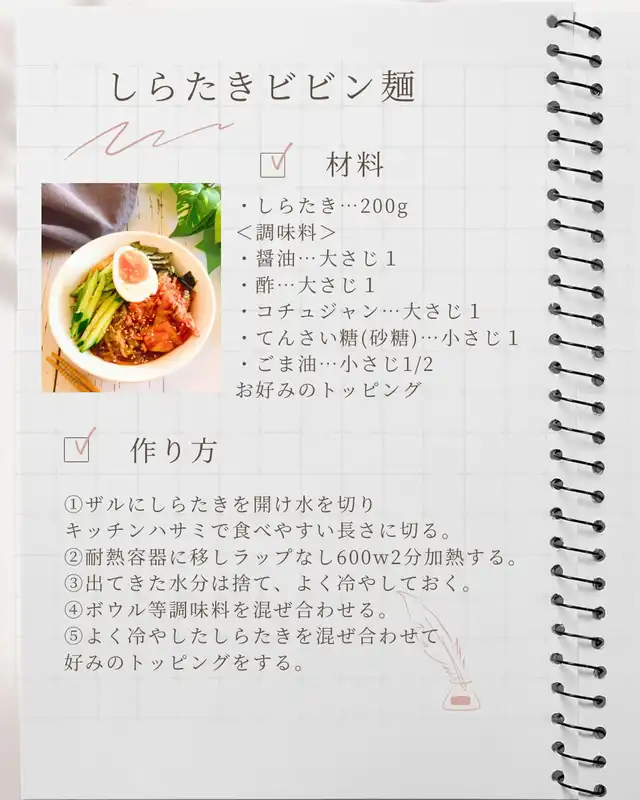 しらたきビビン麺
材料
・しらたき…200g
＜調味料＞
・醤油…大さじ１
・酢…大さじ１
・コチュジャン…大さじ１
・てんさい糖(砂糖)…小さじ１
・ごま油…小さじ1/2
お好みのトッピング
作り方
①ザルにしらたきを開け水を切り
キッチンハサミで食べやすい長さに切る。
②耐熱容器に移しラップなし600w2分加熱する。
③出てきた水分は捨て、よく冷やしておく。
④ボウル等調味料を混ぜ合わせる。
⑤よく冷やしたしらたきを混ぜ合わせて
好みのトッピングをする。